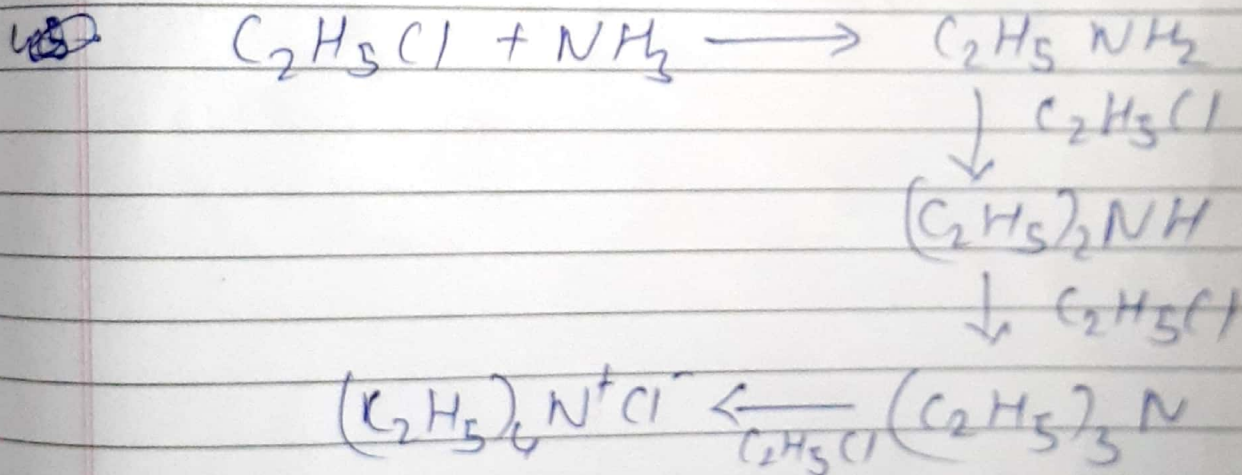 C₂H₅Cl + NH₃ ⟶ C₂H₅NH₂
↓ C₂H₅Cl
(C₂H₅)₂NH
↓ C₂H₅Cl
(C₂H₅)₄N⁺Cl⁻ ⟵ C₂H₅Cl (C₂H₅)₃N